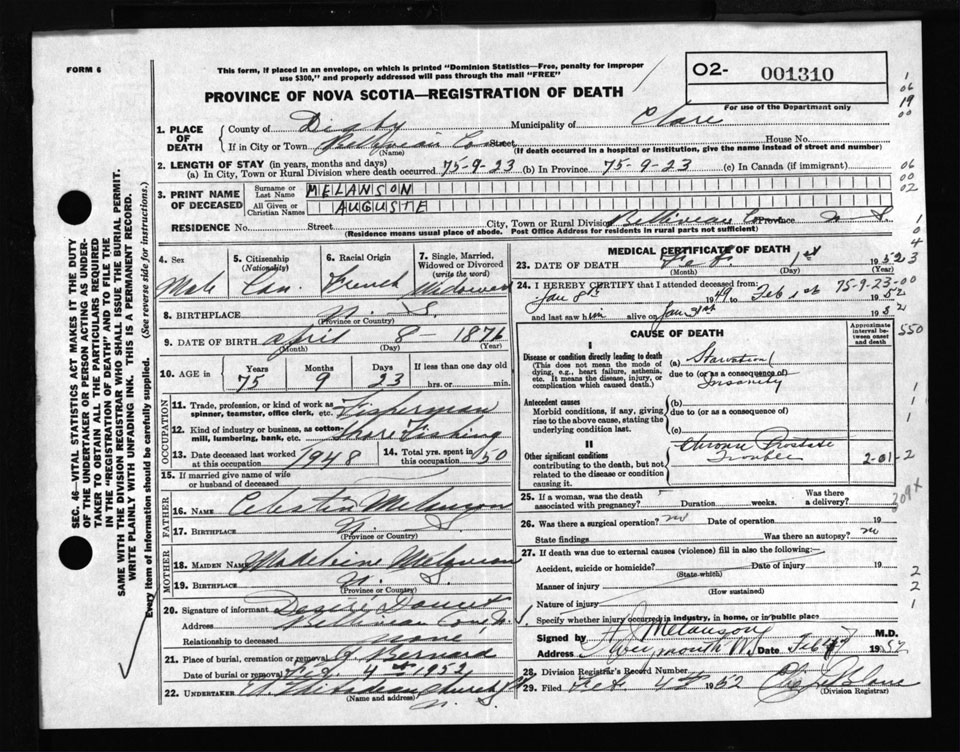 FORM 6
This form, if placed in an envelope, on which is printed "Dominion Statistics—Free, penalty for improper
use $300," and properly addressed will pass through the mail "FREE"
O2- 001310
For use of the Department only
PROVINCE OF NOVA SCOTIA—REGISTRATION OF DEATH
1. PLACE OF DEATH
County of Digby Municipality of Clare
If in City or Town Belliveau Cove Street House No.
(Name) (If death occurred in a hospital or institution, give the name instead of street and number)
2. LENGTH OF STAY (in years, months and days)
(a) In City, Town or Rural Division where death occurred 75-9-23 (b) In Province 75-9-23 (c) In Canada (if immigrant)
3. PRINT NAME OF DECEASED
Surname or Last Name MELANSON
All Given or Christian Names AUGUSTE
RESIDENCE No. Street City, Town or Rural Division Belliveau Cove Province N. S.
(Residence means usual place of abode. Post Office Address for residents in rural parts not sufficient)
4. Sex Male
5. Citizenship (Nationality) Can.
6. Racial Origin French
7. Single, Married, Widowed or Divorced (write the word) Widowed
8. BIRTHPLACE N. S.
(Province or Country)
9. DATE OF BIRTH April 8 1876
(Month) (Day) (Year)
10. AGE in Years 75 Months 9 Days 23 If less than one day old
hrs. or min.
OCCUPATION
11. Trade, profession, or kind of work as spinner, teamster, office clerk, etc. Fisherman
12. Kind of industry or business, as cotton-mill, lumbering, bank, etc. Shore Fishing
13. Date deceased last worked at this occupation 1948
14. Total yrs. spent in this occupation 50
15. If married give name of wife or husband of deceased
FATHER
16. Name Celestin Melanson
17. Birthplace N. S.
(Province or Country)
MOTHER
18. MAIDEN NAME Madeleine Melanson
19. BIRTHPLACE N. S.
(Province or Country)
20. Signature of informant Doucet
Address Belliveau Cove, N.S.
Relationship to deceased none
21. Place of burial, cremation or removal St Bernard
Date of burial or removal Feb. 4th 1952
22. UNDERTAKER Thibodeau Church Pt
(Name and address) N. S.
MEDICAL CERTIFICATE OF DEATH
23. DATE OF DEATH Feb. 1st 1952
(Month) (Day) (Year)
24. I HEREBY CERTIFY that I attended deceased from: 75-9-23-00
Jan 8th 1949 to Feb 1st 1952
and last saw him alive on Jan 31st 1952
CAUSE OF DEATH
Approximate interval between onset and death
I
Disease or condition directly leading to death
(This does not mean the mode of dying, e.g., heart failure, asthenia, etc. It means the disease, injury, or complication which caused death.)
(a) Starvation
due to (or as a consequence of)
Insanity
Antecedent causes
Morbid conditions, if any, giving rise to the above cause, stating the underlying condition last.
(b)
due to (or as a consequence of)
(c)
II
Other significant conditions
contributing to the death, but not related to the disease or condition causing it.
Chronic Prostate
Trouble
2-01-2
25. If a woman, was the death associated with pregnancy? Duration weeks. Was there a delivery?
26. Was there a surgical operation? no Date of operation 19
State findings Was there an autopsy? no
27. If death was due to external causes (violence) fill in also the following:
Accident, suicide or homicide? Date of injury 19
(State which)
Manner of injury
(How sustained)
Nature of injury
Specify whether injury occurred in industry, in home, or in public place
Signed by Melanson M.D.
Address Weymouth N.S. Date Feb 1952
28. Division Registrar's Record Number
29. Filed Feb. 4th 1952
(Division Registrar)
SEC. 46—VITAL STATISTICS ACT MAKES IT THE DUTY
OF THE UNDERTAKER OR PERSON ACTING AS UNDER-
TAKER TO OBTAIN ALL THE PARTICULARS REQUIRED
IN THE "REGISTRATION OF DEATH" AND TO FILE THE
SAME WITH THE DIVISION REGISTRAR WHO SHALL ISSUE THE BURIAL PERMIT.
WRITE PLAINLY WITH UNFADING INK. THIS IS A PERMANENT RECORD.
Every item of information should be carefully supplied. (See reverse side for instructions.)